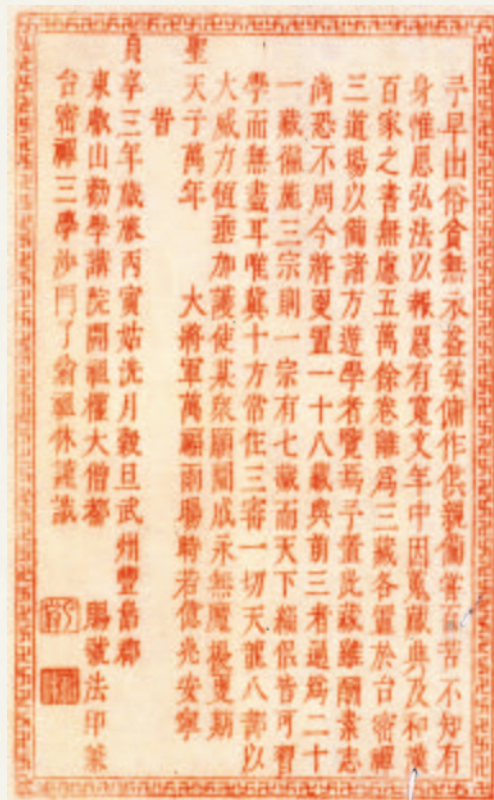 予早出俗貧無永益每傭作供親備嘗百苦不知有
身惟思弘法以報恩有寛文年中因蒐藏典及和漢
百家之書無慮五萬餘卷離爲三藏各置於台密禪
三道場以備諸方遊學者覽焉予置此藏雖酬素志
尚恐不周今將更置一十八藏與前三者通爲二十
一藏備施三宗則一宗有七藏而天下緇侶皆可習
學而無盡耳唯冀十方常住三寳一切天龍八部以
大威力恒垂加護使某衆願圓成永無魔擾更期
聖天子萬年 大將軍萬福雨暘時若億兆安寧
旹
貞享三年歳旅丙寅姑洗月穀旦武州豐嶋郡
東叡山勸學講院開祖權大僧都 賜號法印兼
台密禪三學沙門了翁祖休謹識